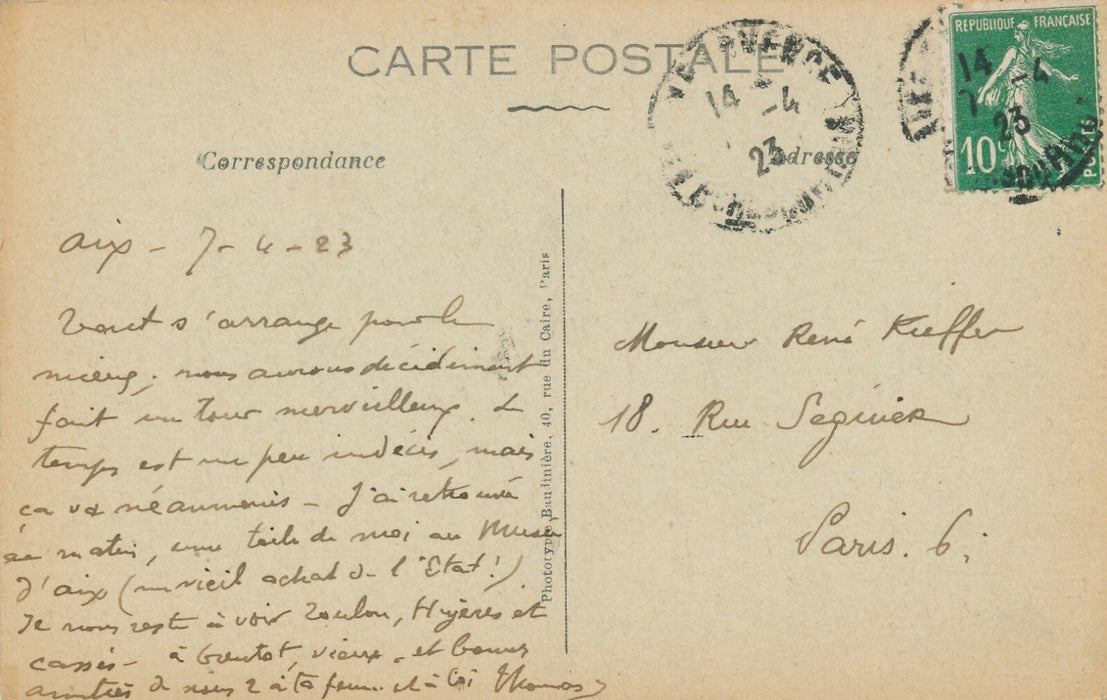 CARTE POSTALE
Correspondance
Adresse
14 -4
23
REPUBLIQUE FRANÇAISE
14
7 -4
23
10c
POSTES
Aix - 7-4-23
Tout s'arrange pour le
mieux; nous aurons décidément
fait un tour merveilleux. Le
temps est un peu indécis, mais
ça va néanmoins - J'ai retrouvé
ce matin, une toile de moi au Musée
d'aix (un vieil achat de l'Etat!)
Il nous reste à voir Toulon, Hyères et
cassis - à bientôt, vieux, et bonnes
amitiés de nous 2 à ta femme et à toi Thomas
Phototypie Baudinière, 40, rue du Caire, Paris
Monsieur René Kieffer
18. Rue Seguier
Paris. 6.